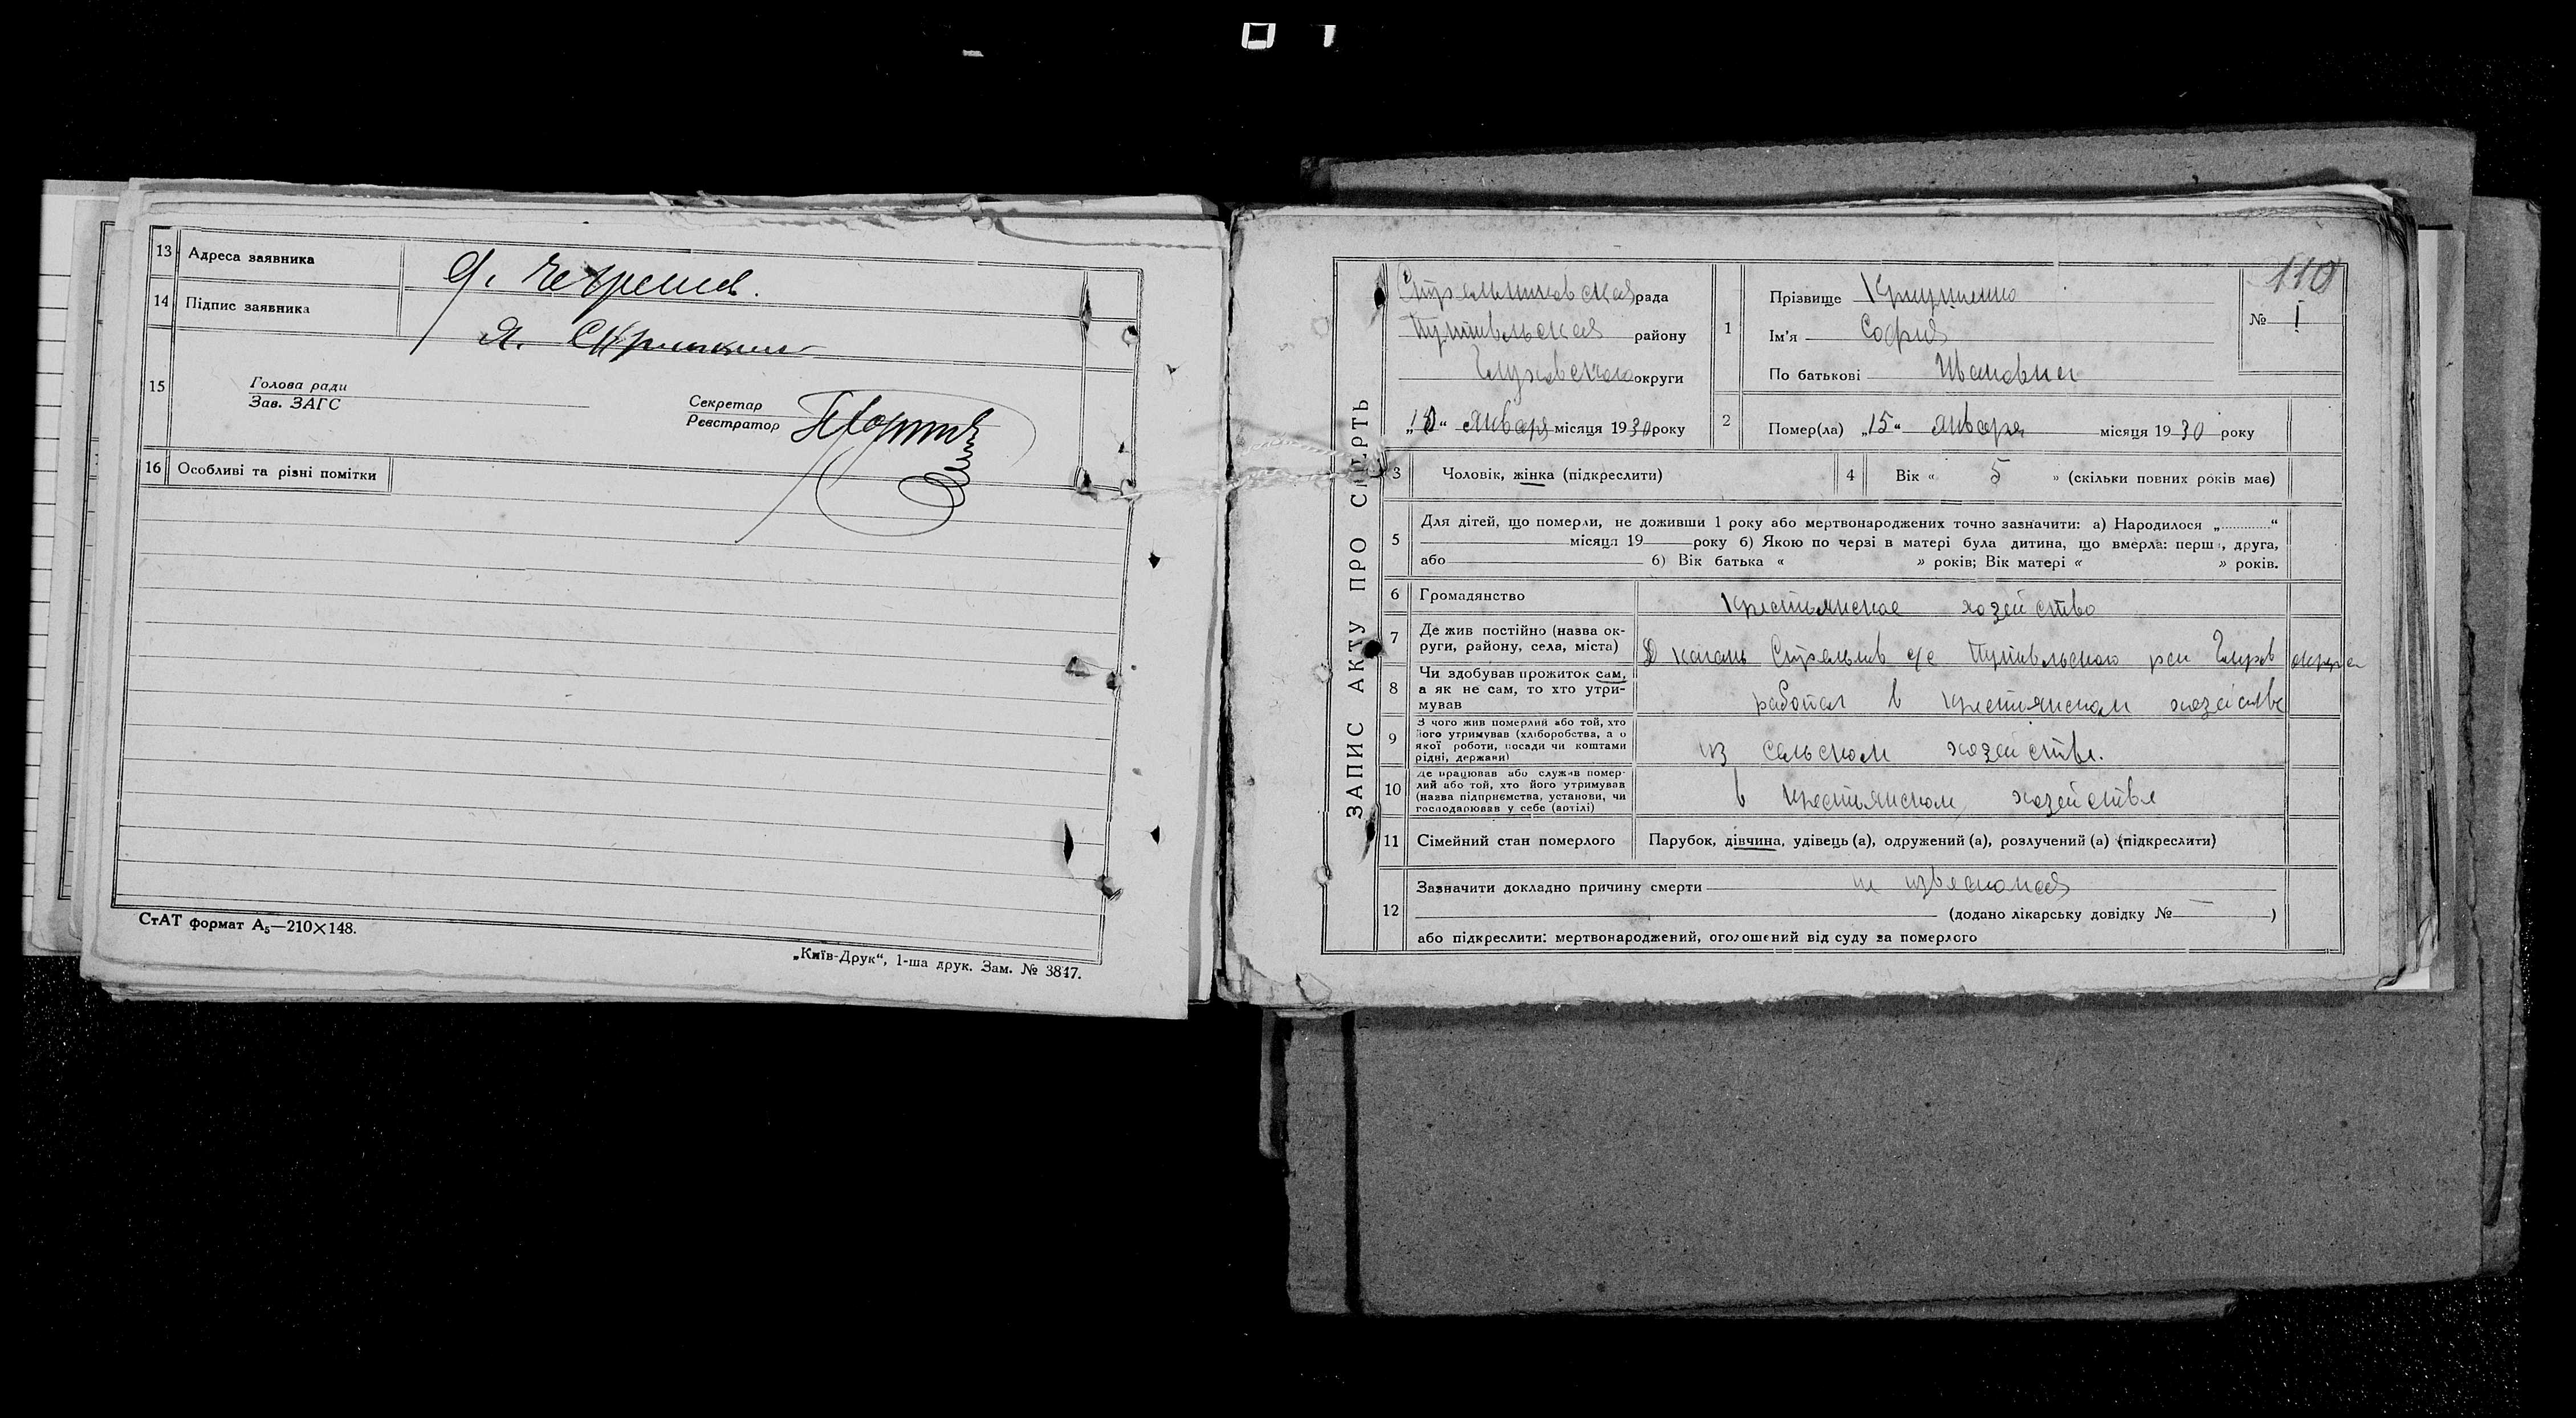 13 Адреса заявника
14 Підпис заявника
15 Голова ради
Зав. ЗАГС
Секретар
Реєстратор
16 Особливі та різні помітки
СтАТ формат А5—210×148.
„Київ-Друк“, 1-ша друк. Зам. № 3847.
110
ЗАПИС АКТУ ПРО СМЕРТЬ
Стрельниковская рада
Путивльская району
Глуховского округи
января місяця 1930 року
1 Прізвище
Ім'я София
По батькові Ивановна
№ 1
2 Помер(ла) „15“ января місяця 1930 року
3 Чоловік, жінка (підкреслити)
4 Вік « 5 » (скільки повних років має)
5 Для дітей, що померли, не доживши 1 року або мертвонароджених точно зазначити: а) Народилося „.............“
місяця 19 року б) Якою по черзі в матері була дитина, що вмерла: перша, друга,
або б) Вік батька « » років; Вік матері « » років.
6 Громадянство Крестьянское хозейство
7 Де жив постійно (назва ок-
руги, району, села, міста) Стрельнив с/с Путивльского
8 Чи здобував прожиток сам,
а як не сам, то хто утри-
мував работал в крестьянском хозействе
9 З чого жив померлий або той, хто
його утримував (хліборобства, а о
якої роботи, посади чи коштами
рідні, держави) из сельском хозействе.
10 Де працював або служив помер-
лий або той, хто його утримував
(назва підприємства, установи, чи
господарював у себе (артілі) в крестьянском хозействе
11 Сімейний стан померлого Парубок, дівчина, удівець (а), одружений (а), розлучений (а) (підкреслити)
12 Зазначити докладно причину смерти не извесномая
(додано лікарську довідку № — )
або підкреслити: мертвонароджений, оголошений від суду за померлого